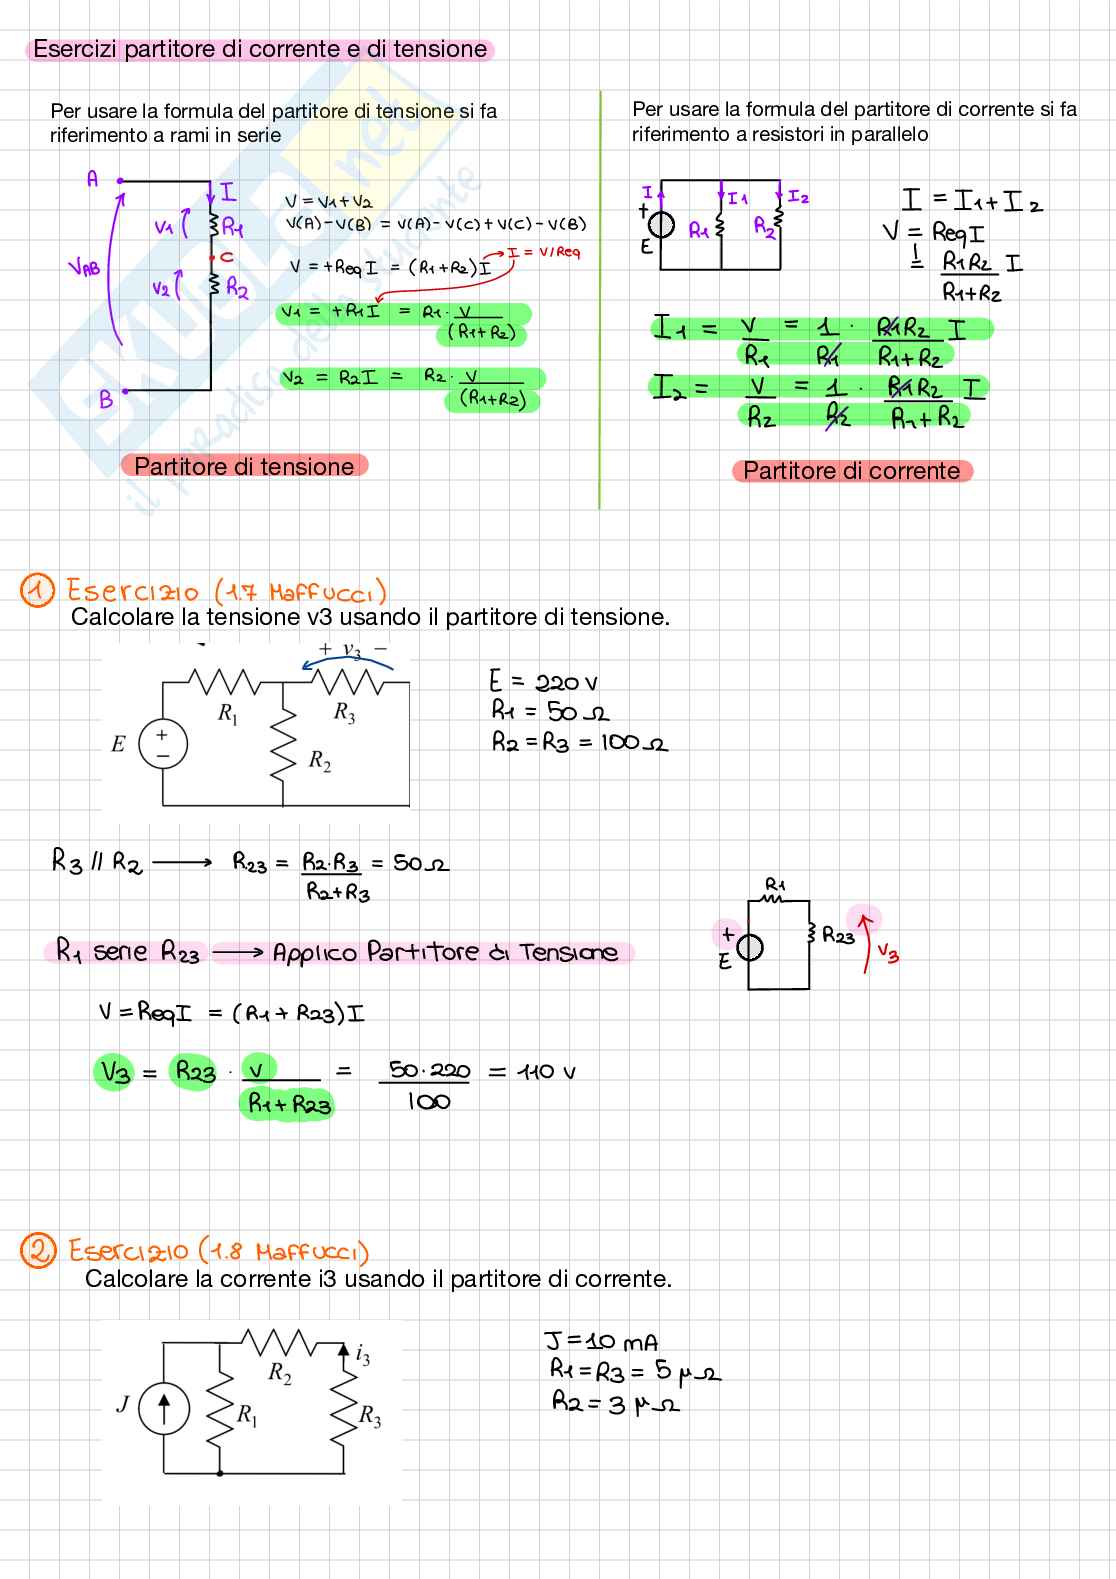 Esercizi partitore di corrente e di tensione
Per usare la formula del partitore di tensione si fa
riferimento a rami in serie
A
I
V1
R1
C
VAB
V2
R2
B
V = V1 + V2
V(A) - V(B) = V(A) - V(C) + V(C) - V(B)
V = + Req I = (R1 + R2) I
I = V/Req
V1 = + R1 I = R1 · V / (R1 + R2)
V2 = R2 I = R2 · V / (R1 + R2)
Partitore di tensione
Per usare la formula del partitore di corrente si fa
riferimento a resistori in parallelo
I
I1
I2
+
E
R1
R2
I = I1 + I2
V = Req I
R1R2 / R1 + R2 I
I1 = V / R1 = 1 / R1 · R1R2 / R1 + R2 I
I2 = V / R2 = 1 / R2 · R1R2 / R1 + R2 I
Partitore di corrente
SKUOLA.net
il paradiso dello studente
1 Esercizio (1.7 Maffucci)
Calcolare la tensione v3 usando il partitore di tensione.
+ v3 −
R1
R3
E
+
−
R2
E = 220 V
R1 = 50 Ω
R2 = R3 = 100 Ω
R3 // R2 → R23 = R2 · R3 / R2 + R3 = 50 Ω
R1 serie R23 → Applico Partitore di Tensione
R1
+
E
R23
V3
V = Req I = (R1 + R23) I
V3 = R23 · V / R1 + R23 = 50 · 220 / 100 = 110 V
2 Esercizio (1.8 Maffucci)
Calcolare la corrente i3 usando il partitore di corrente.
R2
i3
J
R1
R3
J = 10 mA
R1 = R3 = 5 μΩ
R2 = 3 μΩ